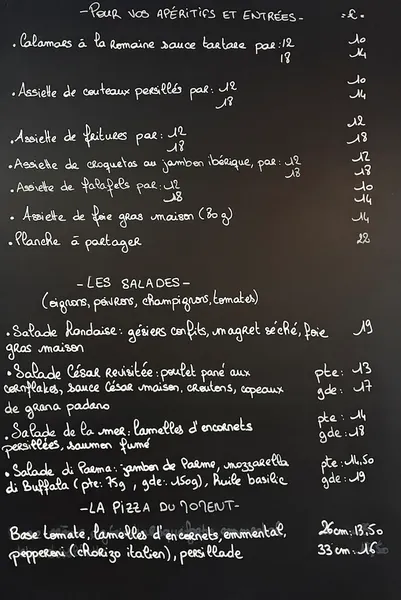 - POUR VOS APÉRITIFS ET ENTRÉES - -€-
• Calamars à la Romaine sauce tartare par: 12 10
18 14
• Assiette de couteaux persillés par: 12 10
18 14
• Assiette de fritures par: 12 12
18 18
• Assiette de croquetas au jambon ibérique, par: 12 12
18 18
• Assiette de falafels par: 12 10
18 14
• Assiette de foie gras maison (80g) 14
• Planche à partager 22
- LES SALADES -
(oignons, poivrons, champignons, tomates)
• Salade Landaise: gésiers confits, magret séché, foie gras maison 19
• Salade César revisitée: poulet pané aux pte: 13
cornflakes, sauce César maison, croutons, copeaux gde: 17
de grana padano
• Salade de la mer, lamelles d'encornets pte: 14
persillées, saumon fumé gde: 18
• Salade di Parma: jambon de Parme, mozzarella pte: 14.50
di Buffala (pte: 75g, gde: 150g), Huile basilic gde: 19
- LA PIZZA DU MOMENT -
Base tomate, lamelles d'encornets, emmental, 26cm: 13,50
pepperoni (chorizo italien), persillade 33cm: 16